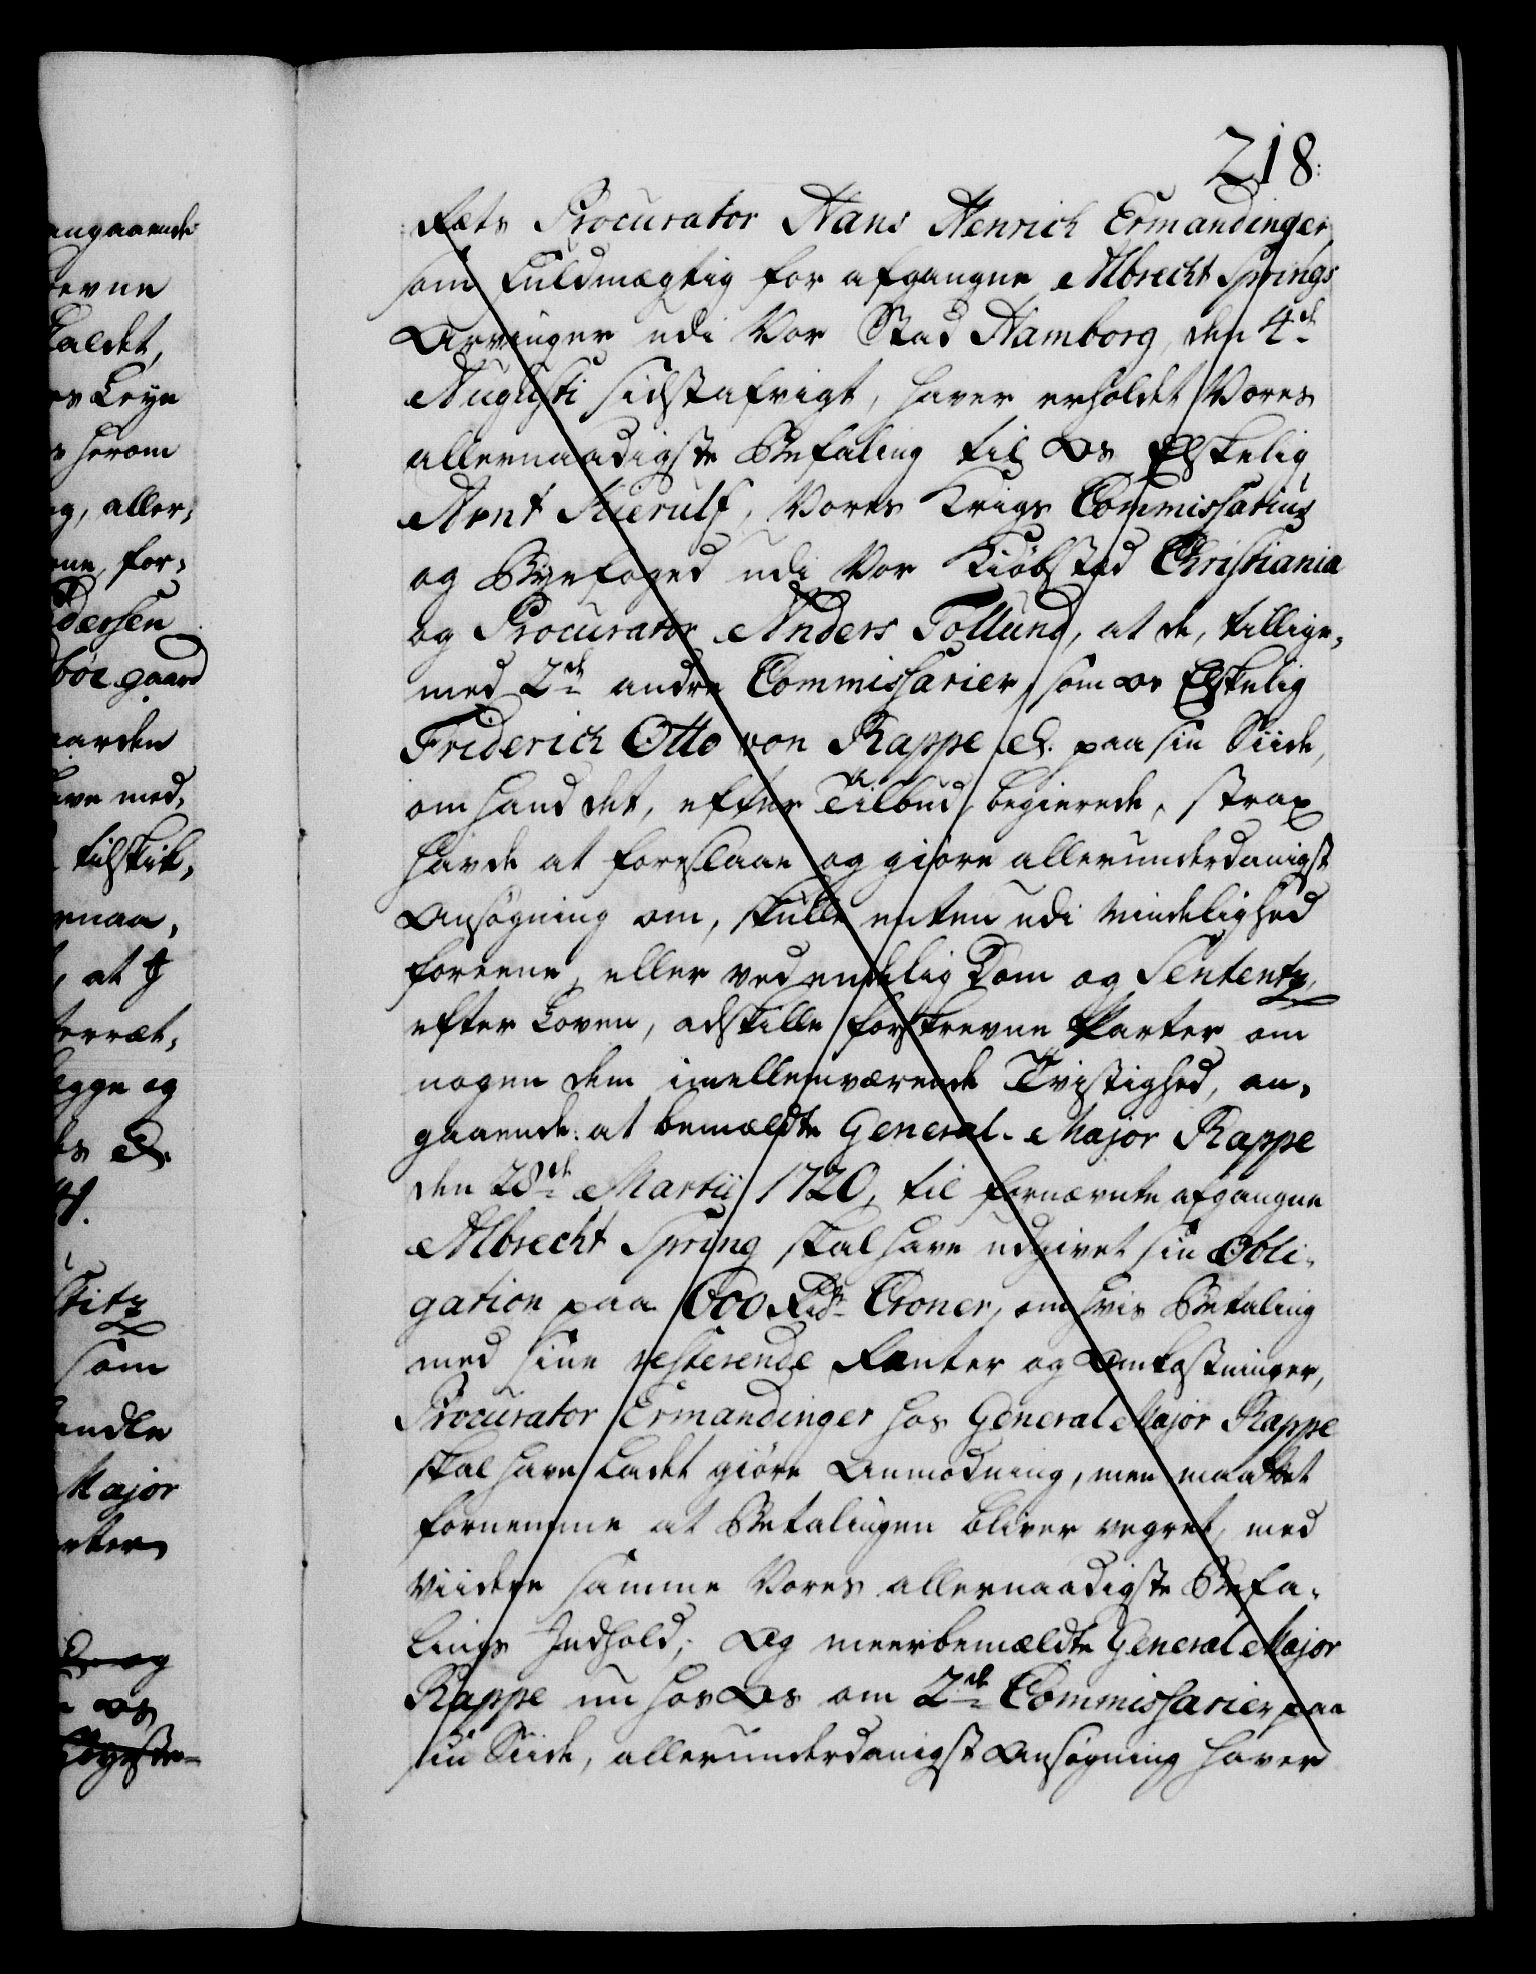 218.
angaaende
Rets Procurator Hans Henrich Ermandinger,
som Fuldmægtig for afgangne Albrecht Springs
Arvinger udi Vor Stad Hamborg, den 4de
Augusti sidstafvigt, haver erholdet Vores
allernaadigste Befaling til Os Elskelig
Arnt Kierulf, Vores Krigs Commissarius
og Byefoged udi Vor Kiøbsted Christiania
og Procurator Anders Tollund, at de, tillige-
med 2de andre Commissarier, som os Elskelig
Friderich Otto von Rappe &c. paa sin Siide,
om hand det, efter Tilbud, begierede, strax
havde at foreslaae og giøre allerunderdanigst
Ansøgning om, skulle enten udi Mindelighed
foreene, eller ved endelig Dom og Sententz,
efter Loven, adskille forskrevne Parter om
nogen dem imellemværende Tvistighed, an-
gaaende: at bemældte General-Major Rappe
den 28de Martii 1720, til fornævnte afgangne
Albrecht Spring skal have udgivet sin Obli-
gation paa 600 Rdr Croner, om hvis Betaling
med sine resterende Renter og Omkostninger,
Procurator Ermandinger hos General Major Rappe
skal have ladet giøre Anmodning, men maattet
fornemme at Betalingen bliver vegret, med
viidere samme Vores allernaadigste Befa-
lings Indhold; Og meerbemældte General Major
Rappe nu hos Os om 2de Commissarier paa
sin Siide, allerunderdanigst Ansøgning haver